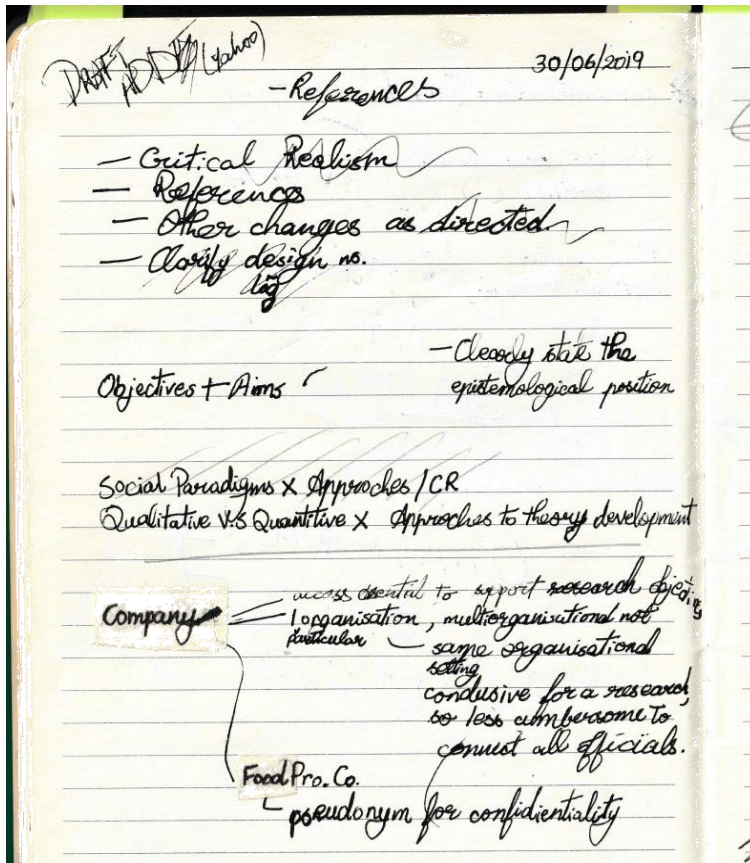 DRAFT
(Yahoo)
30/06/2019
- References
- Critical Realism
- References
- Other changes as directed
- Clarify design no.
- Clearly state the
Objectives + Aims
epistemological position
Social Paradigms x Approches / CR
Qualitative V.S Quantitive x Approches to theory development
access to support research objectives
Company
1 organisation, multiorganisational not
particular
same organisational
setting
condusive for a research,
so less cumbersome to
connect all officials.
Food Pro. Co.
pseudonym for confidentiality